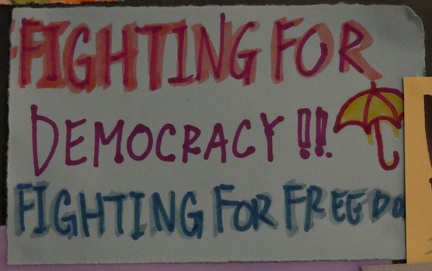 FIGHTING FOR
DEMOCRACY !!!
FIGHTING FOR FREEDO